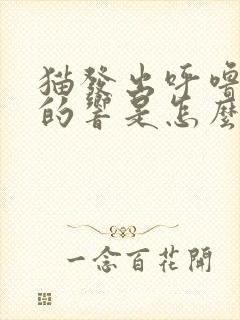 猫發出呼嚕
的響是怎麼
一念百花開